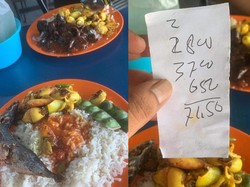 2
2800
3700
650
7150